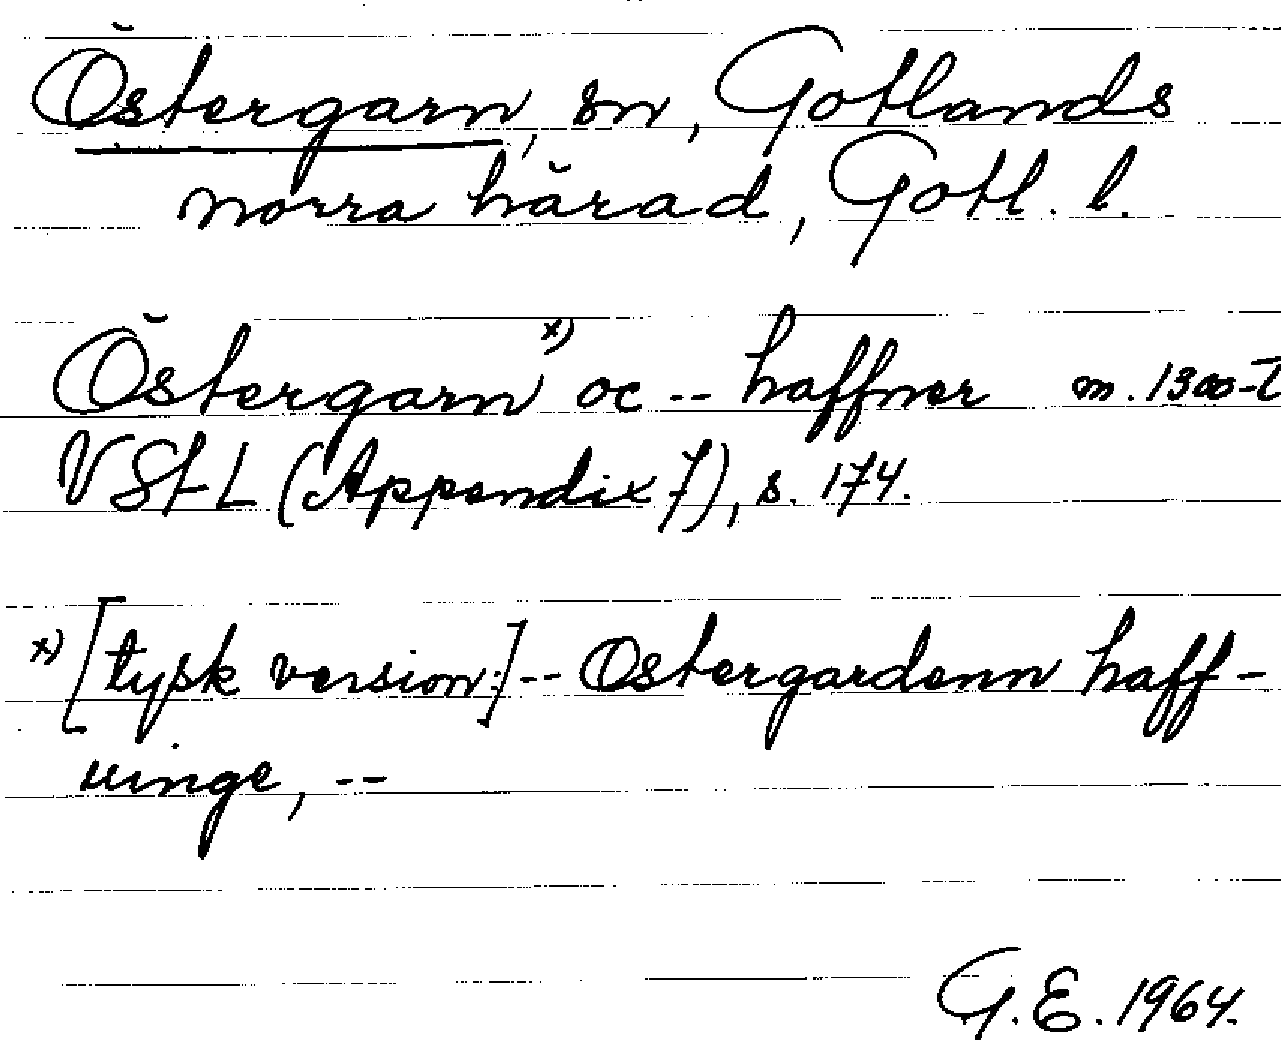 Östergarn, sn, Gotlands
norra härad, Gotl. l.
Östergarn x) oc -- haffner m. 1300-t
VStL (Appendix 7), s. 174.
x) [tysk version:] -- Ostergardenn haff-
uinge, --
G.E. 1964.